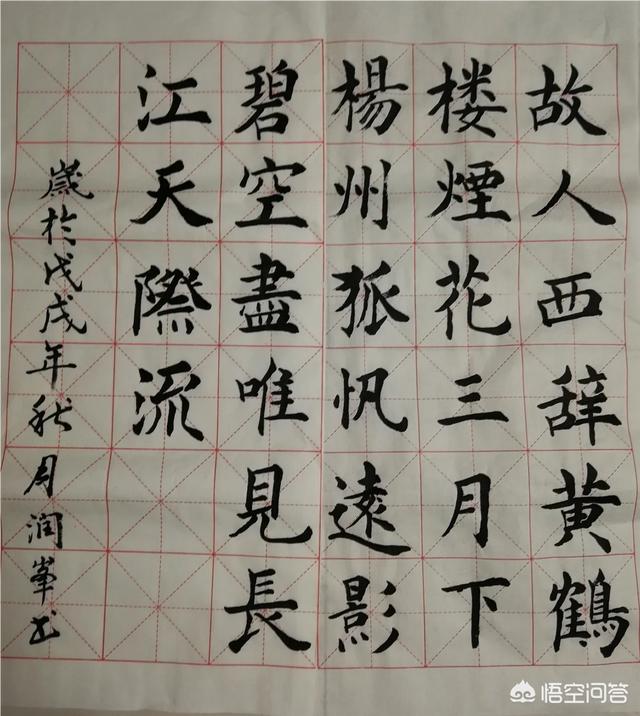 故人西辞黄鶴
楼煙花三月下
楊州狐帆遠影
碧空盡唯見長
江天際流
歲於戊戌年秋周润峯书
悟空问答